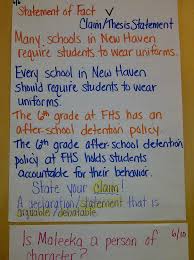 Statement of Fact ✓
Claim/Thesis Statement
Many schools in New Haven
require students to wear uniforms.
Every school in New Haven
should require students to wear
uniforms.
The 6th grade at FHS has an
after-school detention policy.
The 6th grade after-school detention
policy at FHS holds students
accountable for their behavior.
State your claim!
A declaration/statement that is
arguable/debatable.
Is Maleeka a person of 6/10
character?